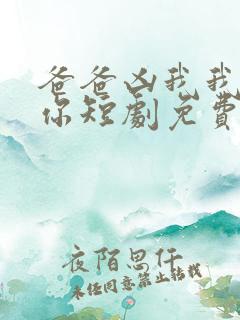 爸爸凶我我
你短劇免費
夜陌思仟
未经同意禁止转载